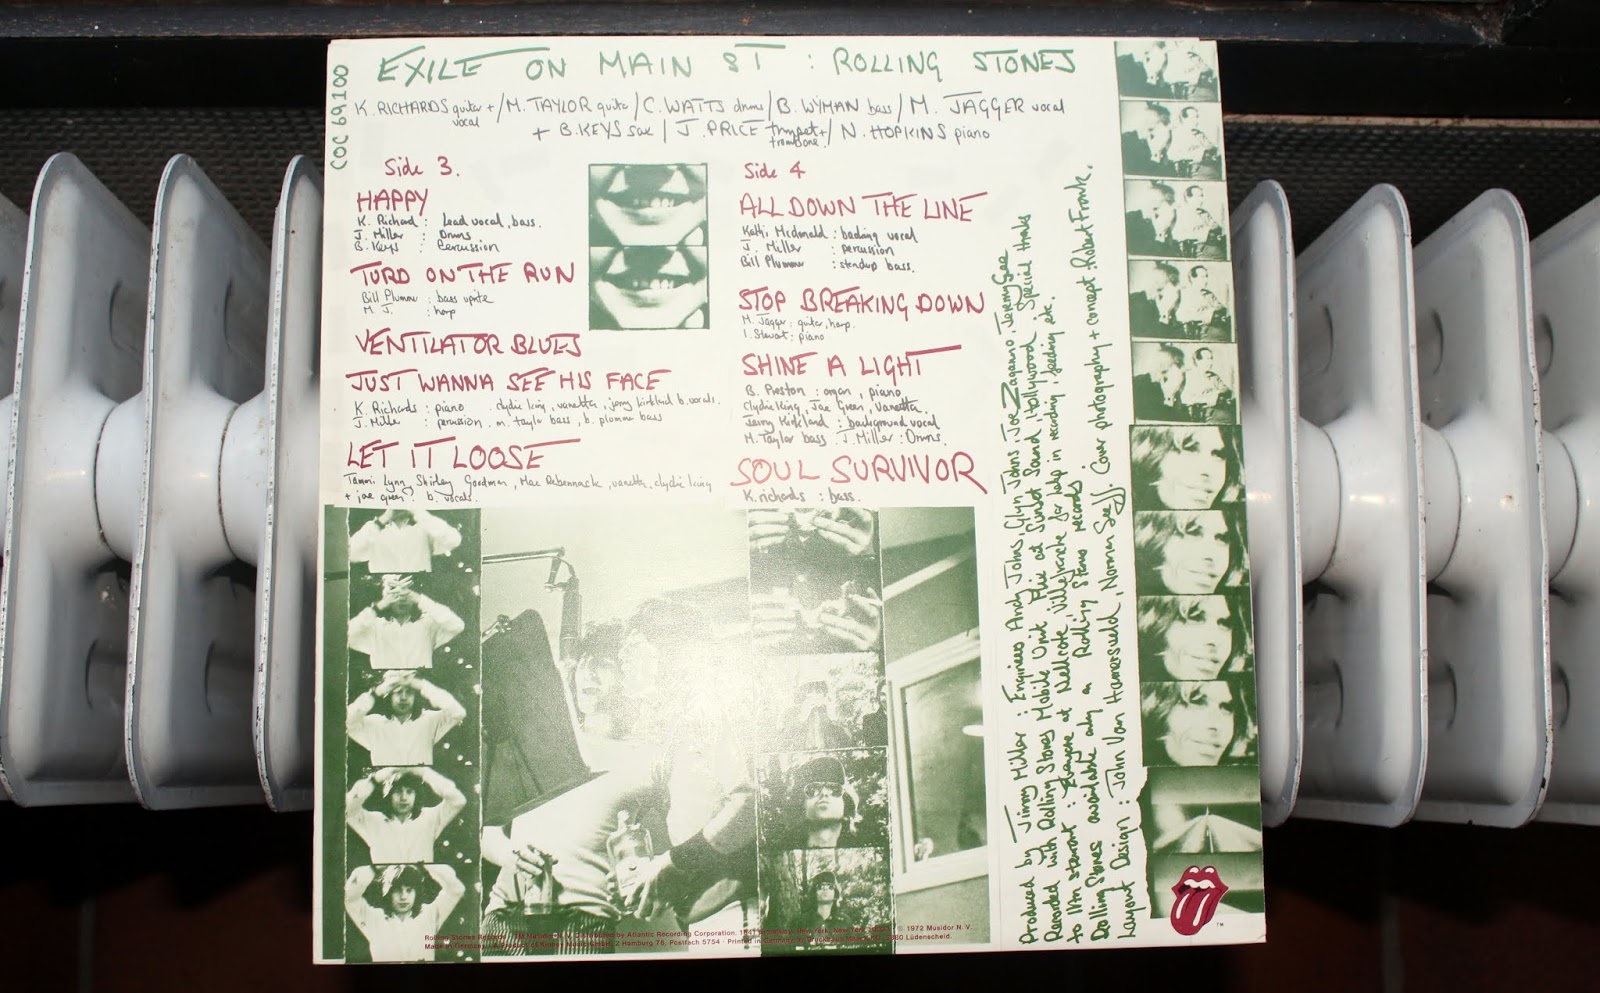 EXILE ON MAIN ST : ROLLING STONES
COC 69100
K. RICHARDS guitar + vocal / M. TAYLOR guitar / C. WATTS drums / B. WYMAN bass / M. JAGGER vocal
+ B. KEYS sax / J. PRICE trumpet + trombone / N. HOPKINS piano
Side 3.
HAPPY
K. Richard : Lead vocal, bass.
J. Miller : Drums
B. Keys : Percussion
TURD ON THE RUN
Bill Plummer : bass uprite
M. J. : harp
VENTILATOR BLUES
JUST WANNA SEE HIS FACE
K. Richards : piano . clydie king, vanetta, jerry kirkland b. vocals.
J. Miller : percussion . m. taylor bass, b. plummer bass
LET IT LOOSE
Tammi Lynn, Shirley Goodman, Mac Rebennack, vanetta, clydie king
+ joe green, b. vocals.
Side 4
ALL DOWN THE LINE
Kathi Mcdonald : backing vocal
J. Miller : percussion
Bill Plummer : standup bass.
STOP BREAKING DOWN
M. Jagger : guitar, harp.
I. Stewart : piano
SHINE A LIGHT
B. Preston : organ, piano
Clydie King, Joe Green, Vanetta
Jerry Kirkland : background vocal
M. Taylor bass J. Miller : Drums.
SOUL SURVIVOR
K. richards : bass.
Produced by Jimmy Miller : Engineers Andy Johns, Glyn Johns, Joe Zagarino, Jeremy Gee
Recorded with Rolling Stones Mobile Unit Mix at Sunset Sound, Hollywood. Special thanks
to Ian Stewart : Everyone at Nellcote, Villefranche for help in recording, feeding etc.
Rolling Stones available only on Rolling Stones records.
Layout Design : John Van Hamersveld, Norman Seeff. Cover photography + concept : Robert Frank.
Rolling Stones Records, TM Musidor N. V. Distributed by Atlantic Recording Corporation. 1841 Broadway, New York, New York © 1972 Musidor N. V.
Made in Germany. 2 Hamburg 76, Postfach 5754 · Printed in Germany by Lüdenscheid.
TM